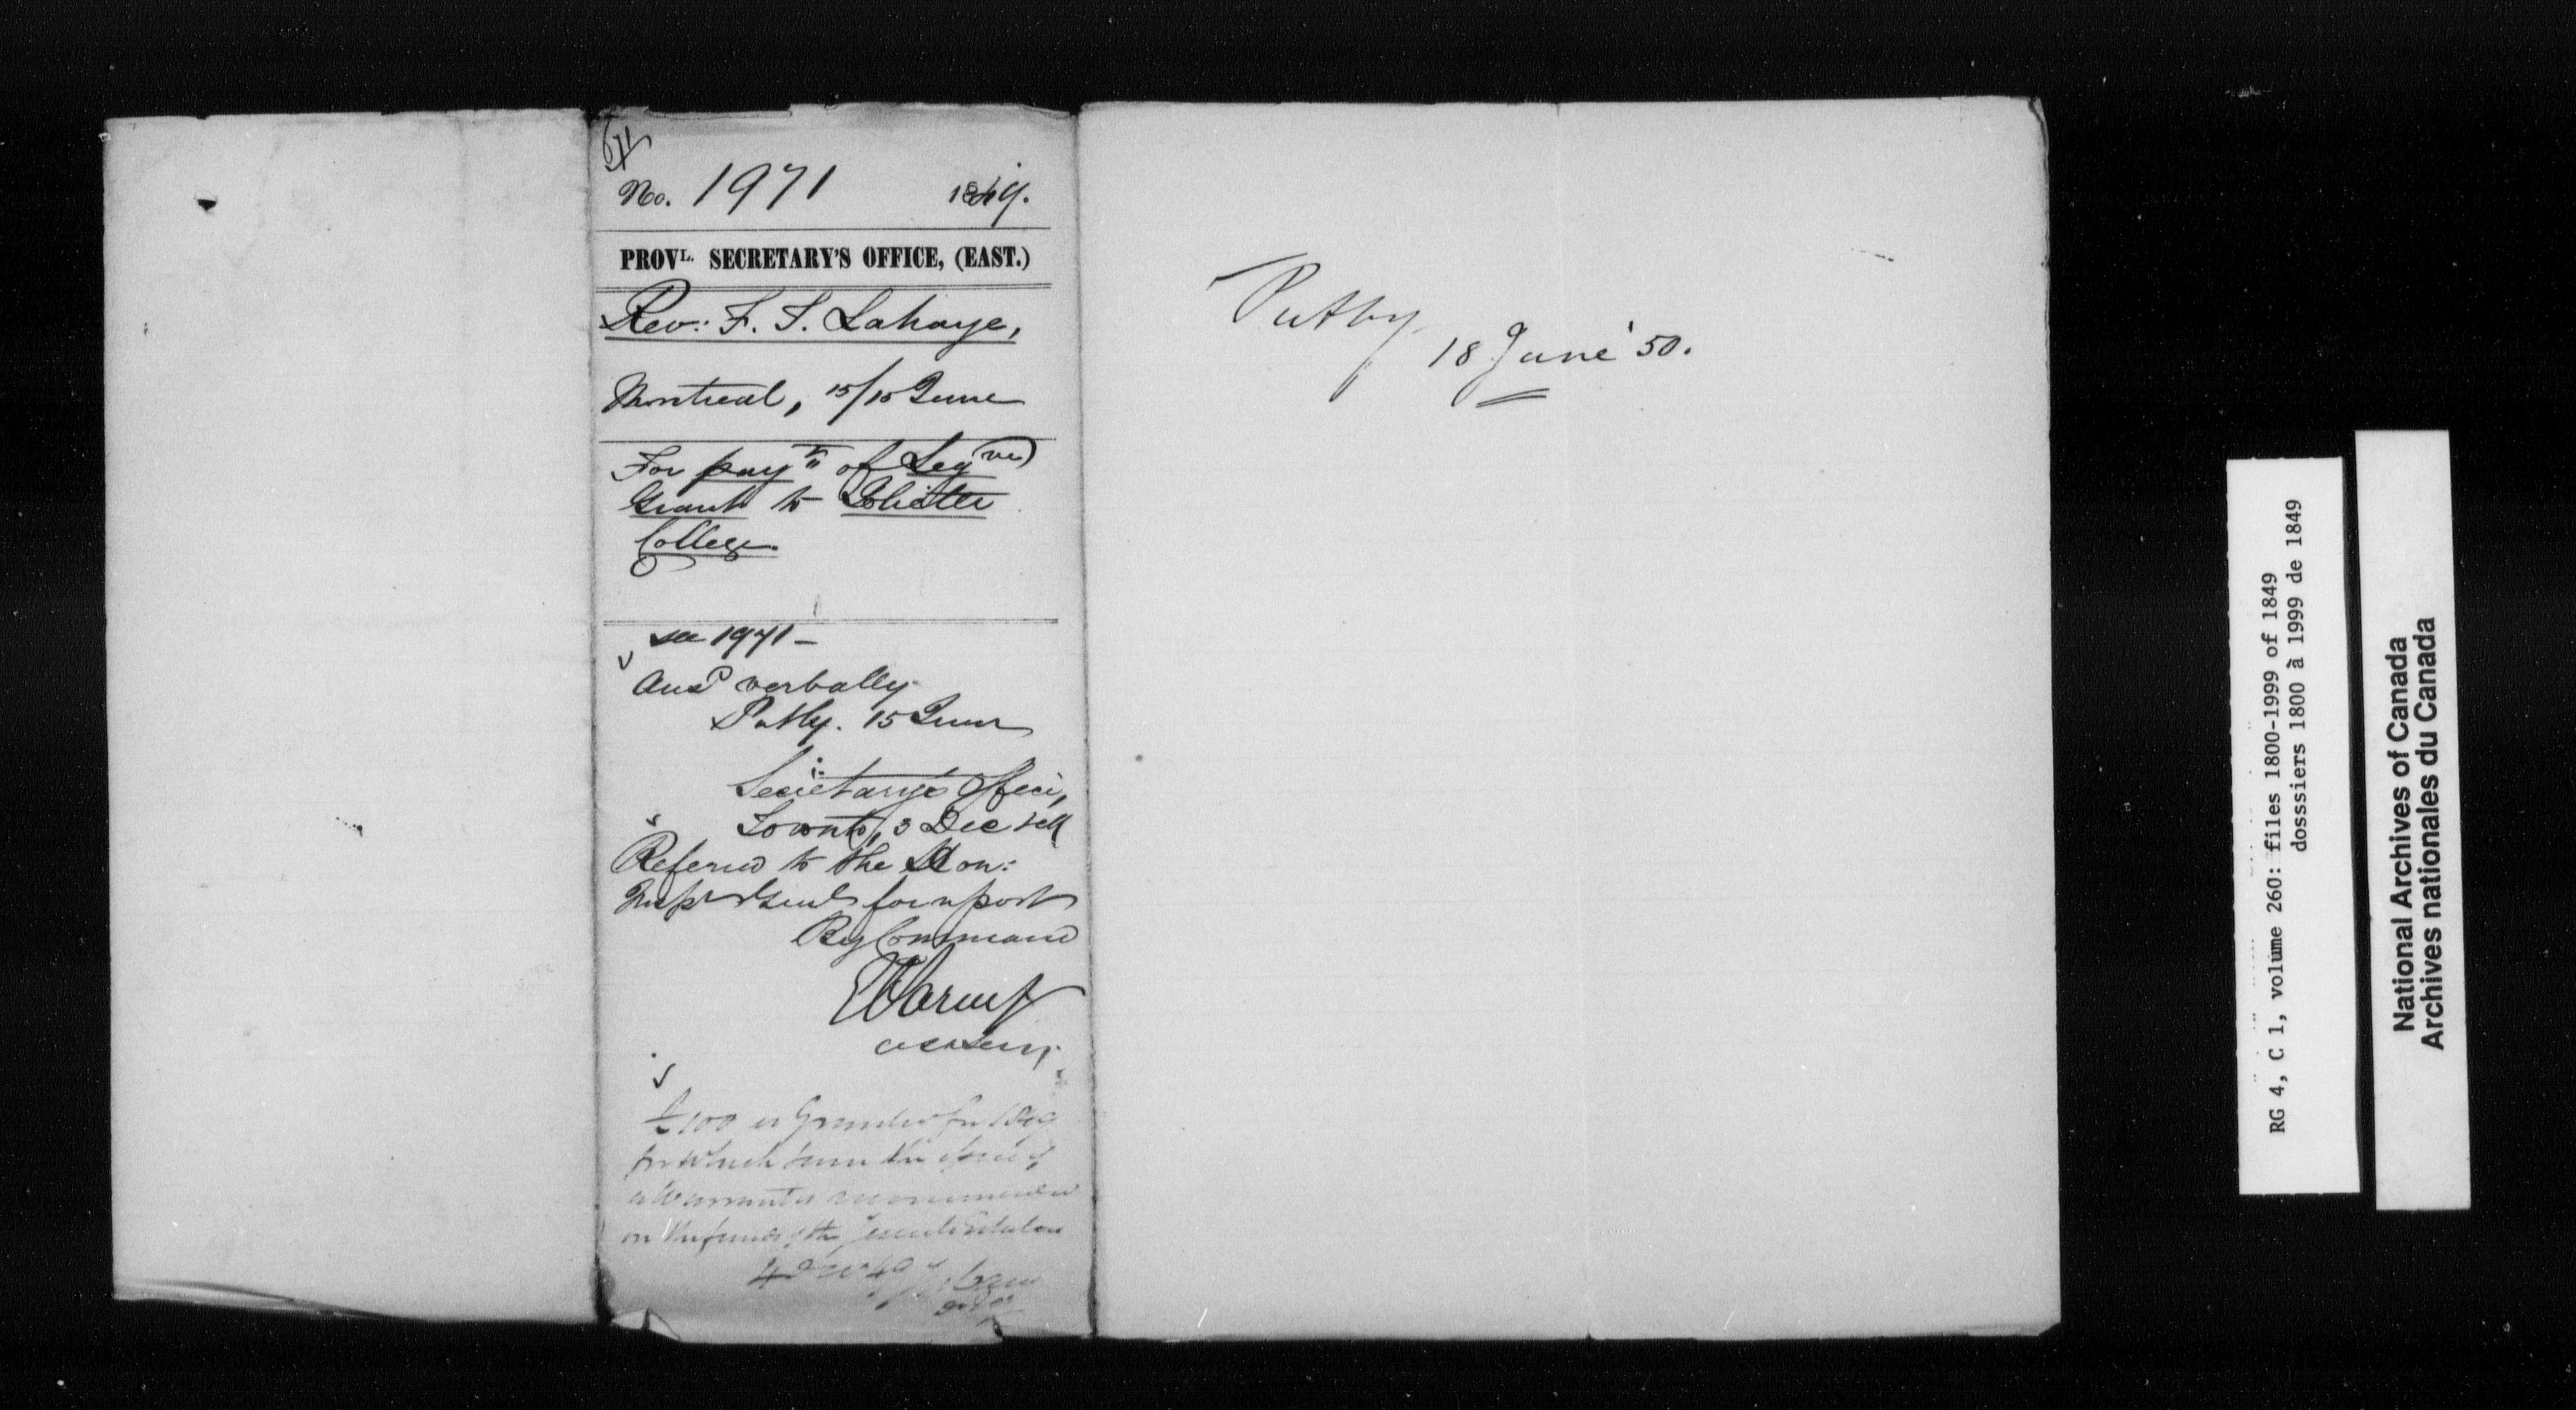 No. 1971 1849.
PROVL. SECRETARY'S OFFICE, (EAST.)
Rev: F. T. Lahaye,
Montreal, 15/15 June
For paymt of Leg(ve)
Grant to Joliette
College.
see 1941 –
Ansd verbally
P. Atby. 15 June
Secretary's Office,
Toronto, 3 Dec
Referred to the Hon:
Inspr Genl for report
By Command
asst Secy.
£100 is Granted for 1849
for which sum the issue of
a Warrant is recommended
on the funds of the Jesuits Estates
4 Dec 49
Put by
18 June '50.
RG 4, C 1, volume 260: files 1800-1999 of 1849
dosssiers 1800 à 1999 de 1849
National Archives of Canada
Archives nationales du Canada